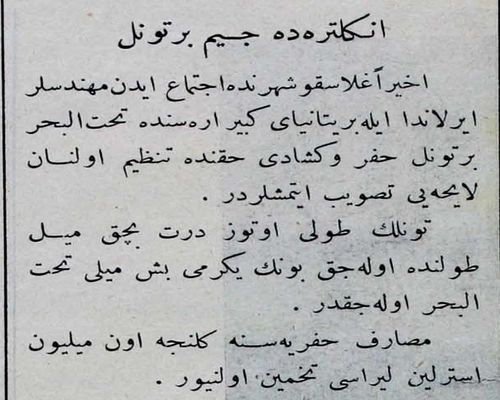 انكلتره‌ده جسیم برتونل
اخیراً غلاسقو شهرنده اجتماع ایدن مهندسلر
ایرلاندا ایله بریتانیای كبیر اره‌سنده تحت‌البحر
برتونل حفر وكشادی حقنده تنظیم اولنان
لایحه‌یی تصویب ایتمشلردر .
تونلك طولی اوتوز درت بچق میل
طولنده اوله‌جق بونك یكرمی بش میلی تحت
البحر اوله‌جقدر .
مصارف حفریه‌سنه كلنجه اون میلیون
استرلین لیراسی تخمین اولنیور .